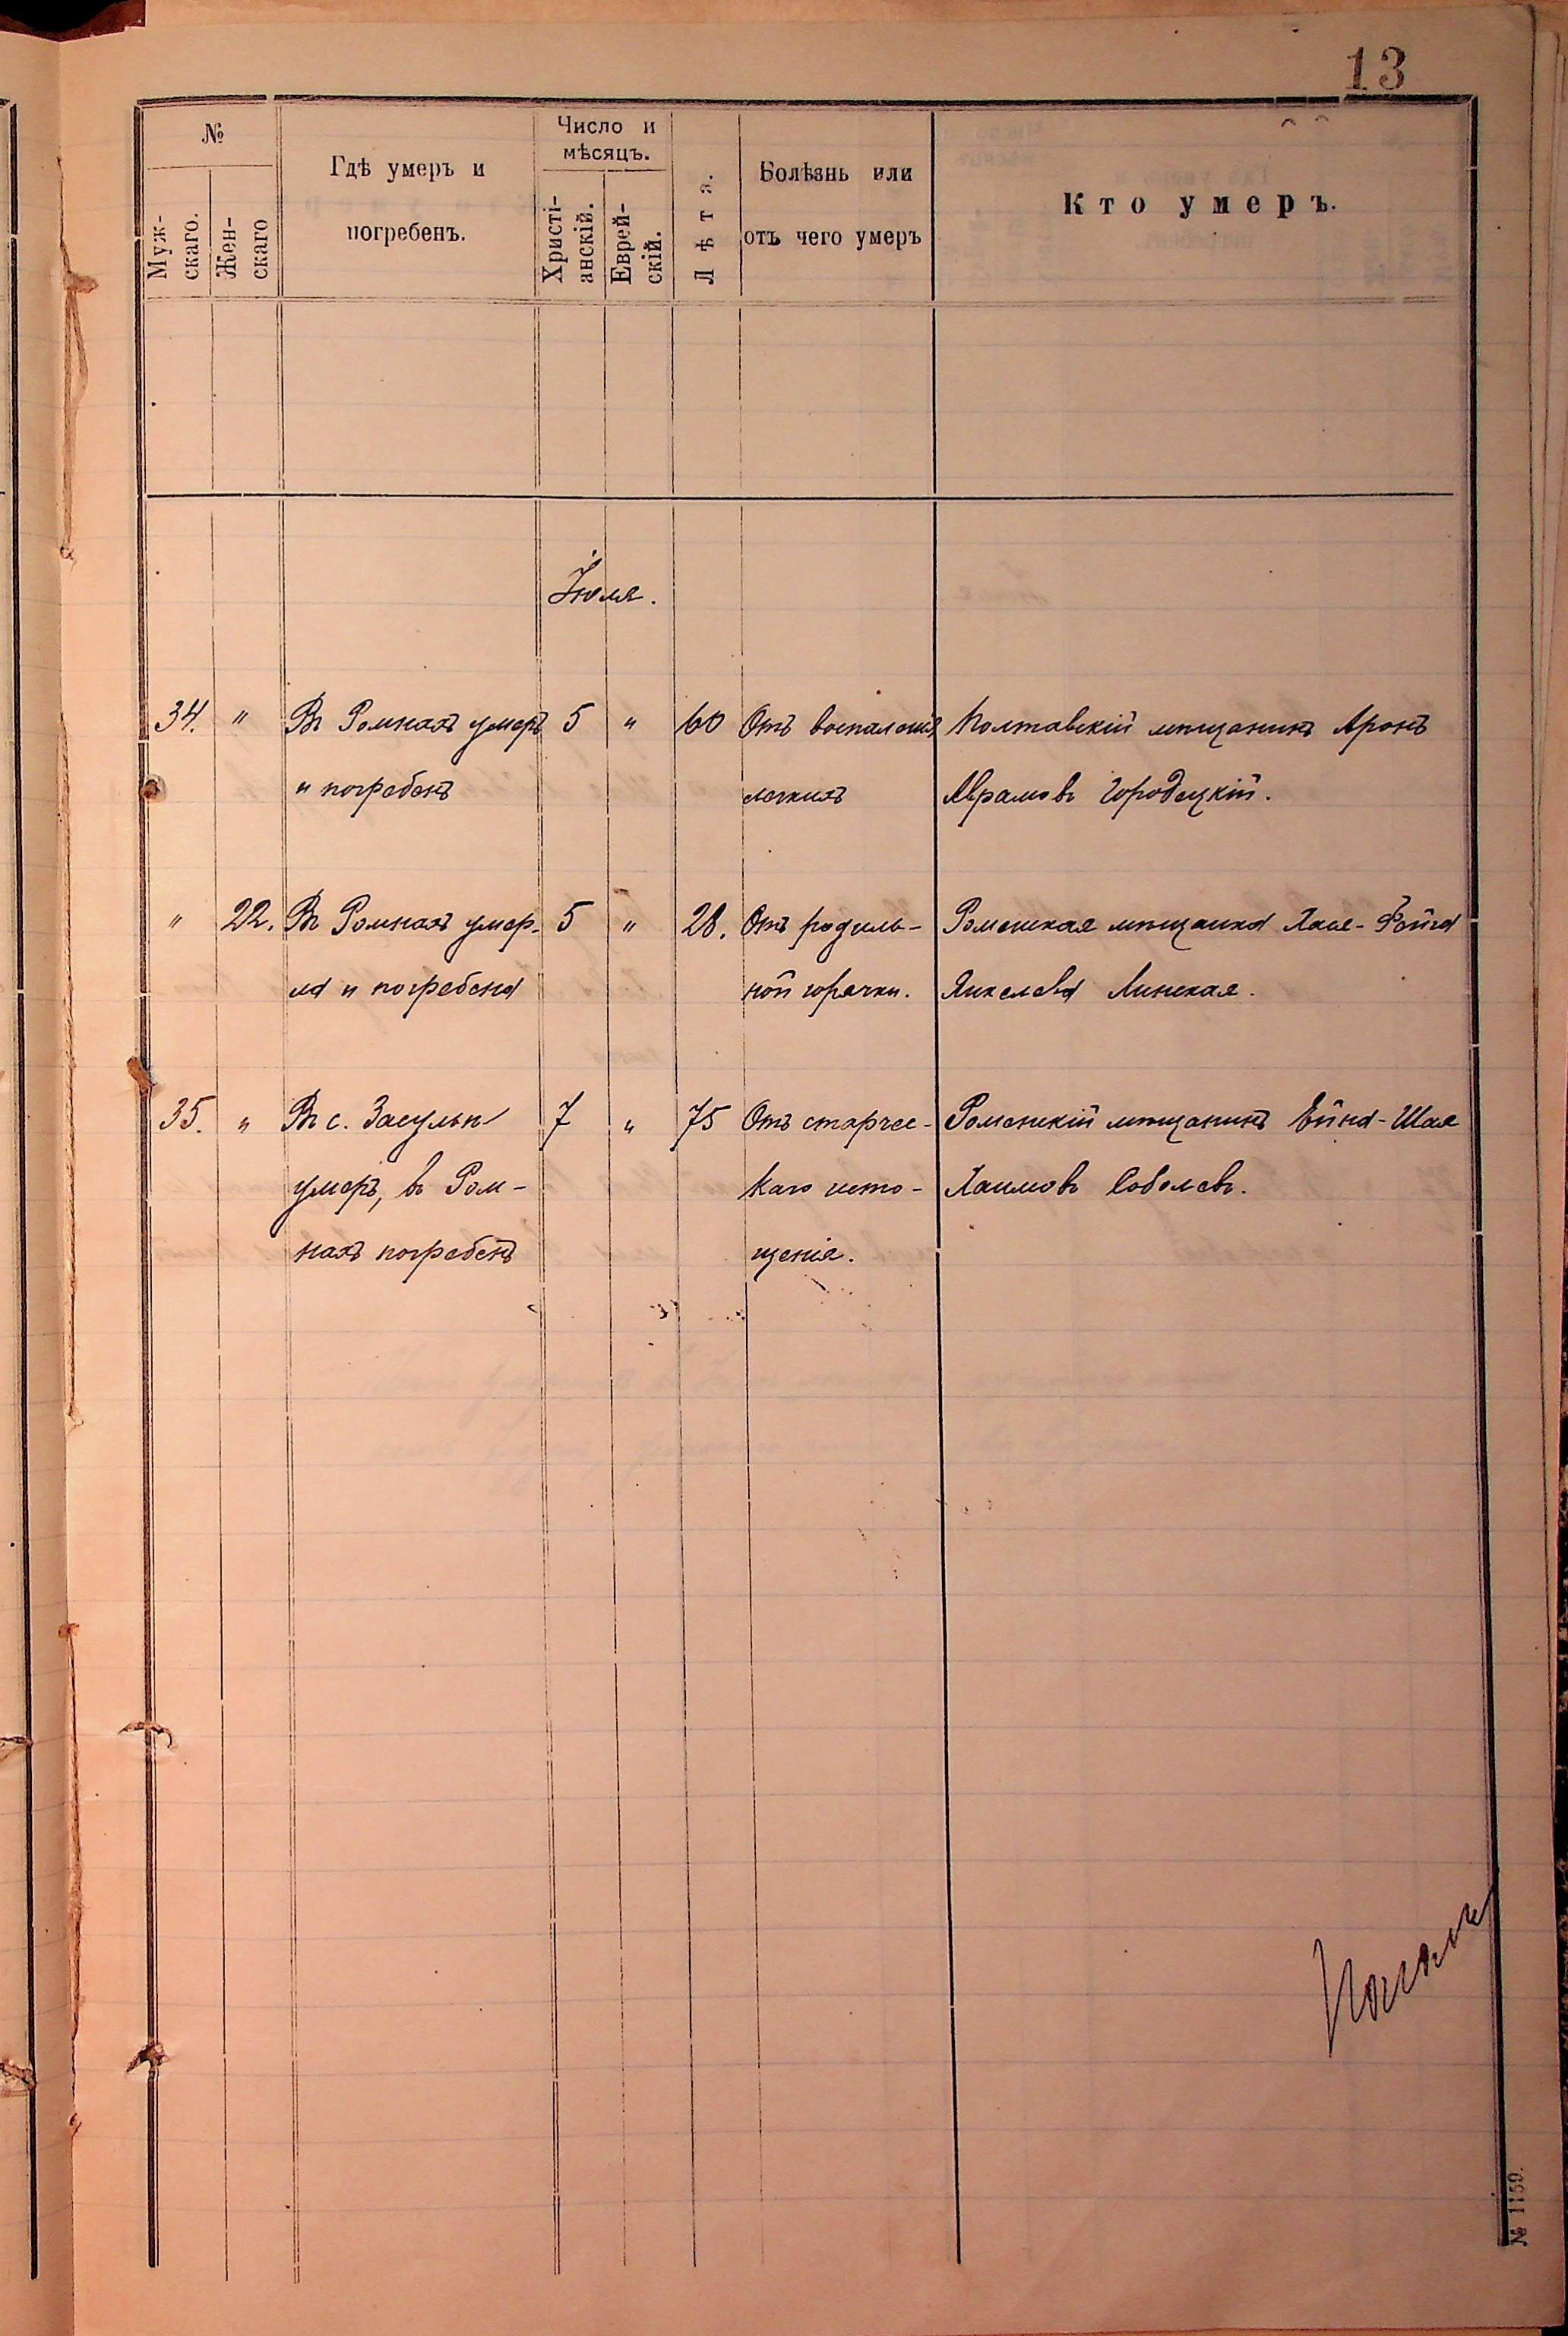 13
№
Муж-
скаго.
Жен-
скаго
Гдѣ умеръ и
погребенъ.
Число и
мѣсяцъ.
Христі-
анскій.
Еврей-
скій.
Лѣта.
Болѣзнь или
отъ чего умеръ
Кто умеръ.
Іюля.
34. " Въ Ромнахъ умеръ 5 " 60 Отъ воспаленія Полтавскій мѣщанинъ Аронъ
и погребенъ легкихъ Аврамовъ Городецкій.
" 22. Въ Ромнахъ умер- 5 " 28. Отъ родиль- Роменская мѣщанка Хася-Фейга
ла и погребена ной горячки. Янкелева Минская.
35. " Въ с. Засульи 7 " 75 Отъ старчес- Роменскій мѣщанинъ Ейна-Шая
умеръ, въ Ром- каго исто- Хаимовъ Соболевъ.
нахъ погребенъ щенія.
№ 1159.